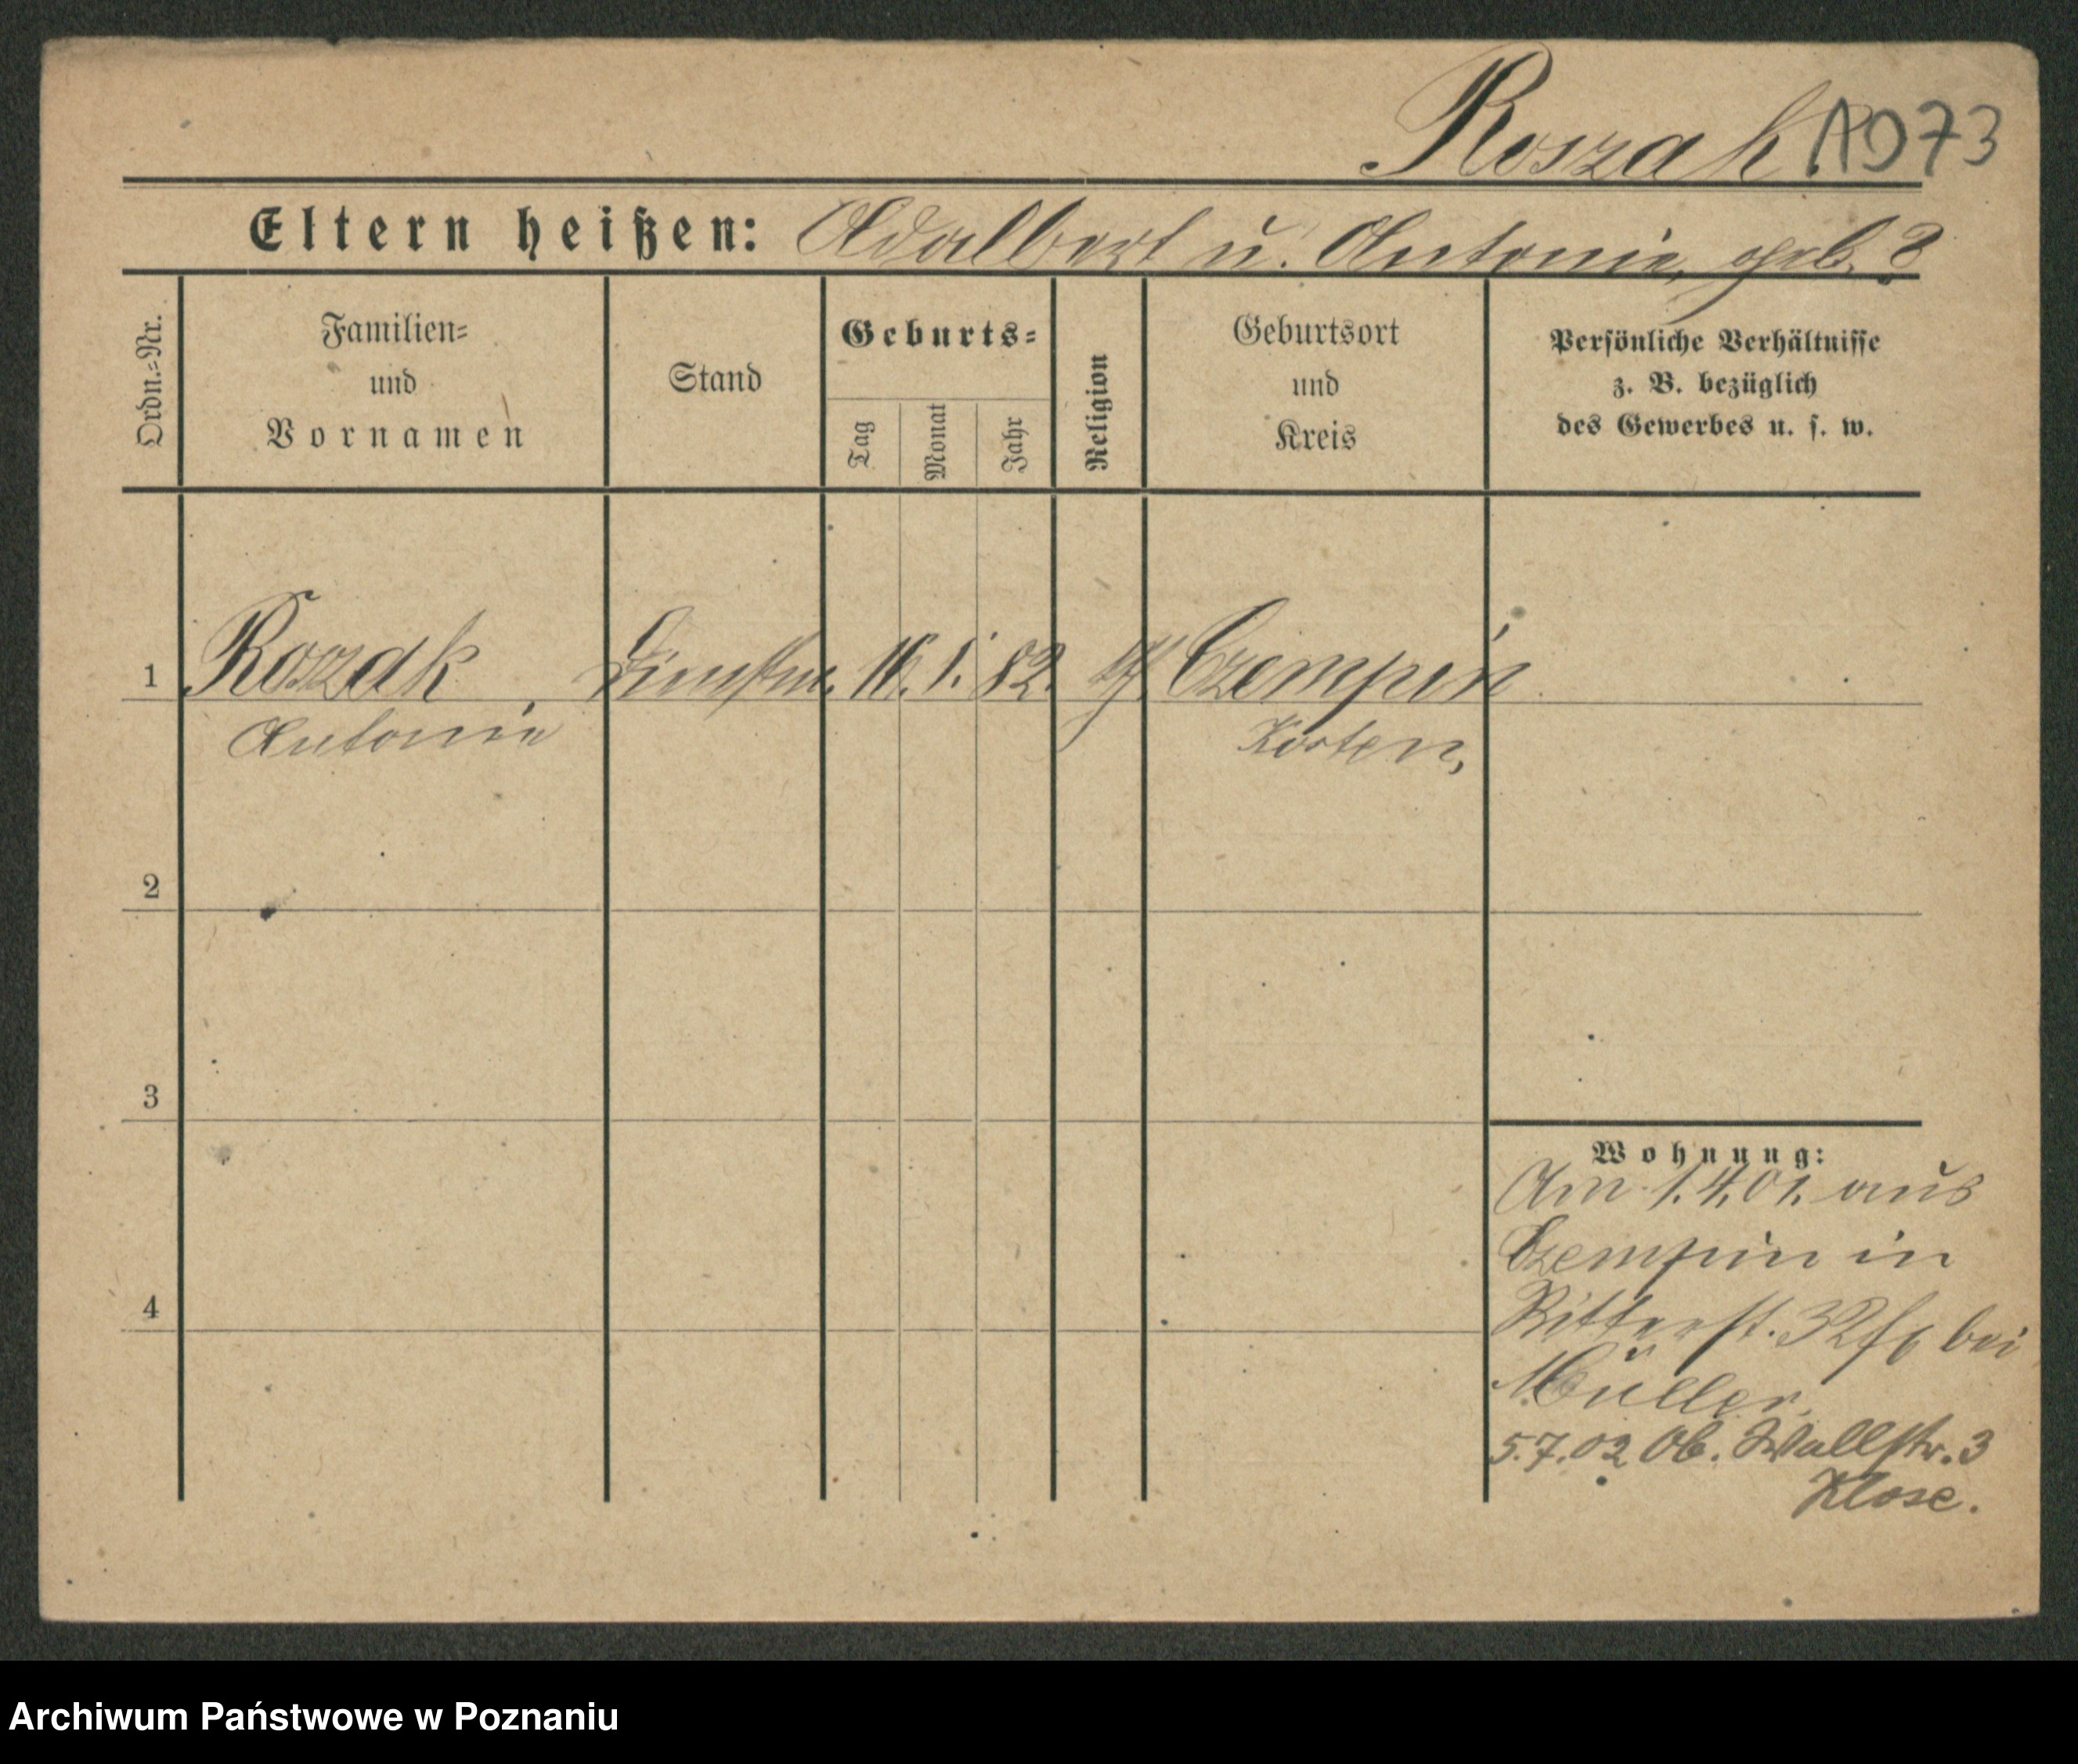 Roszak 1973
Eltern heißen: Adalbert u. Antonie, geb. ?
Ordn.=Nr.
Familien=
und
Vornamen
Stand
Geburts=
Tag
Monat
Jahr
Religion
Geburtsort
und
Kreis
Persönliche Verhältnisse
z. B. bezüglich
des Gewerbes u. s. w.
1 Roszak 16. 1. 82. Czempin
Antonie Kosten,
2
3
4
Wohnung:
Am 1.4.01. aus
Czempin in
Ritterst. 32 bei
Müller.
5.7.02 Ob. Wallstr. 3
Klose.
Archiwum Państwowe w Poznaniu